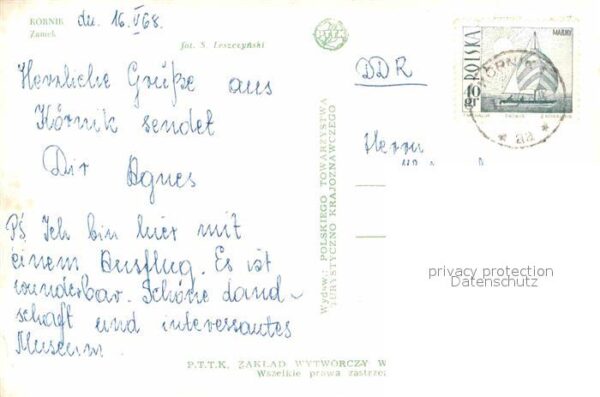 KÓRNIK
Zamek
dn. 16.V68.
fot. S. Leszczyński
PTTK
Herzliche Grüße aus
Kórnik sendet
Dir Agnes
PS. Ich bin hier mit
einem Ausflug. Es ist
wunderbar. Schöne Land-
schaft und interessantes
Museum
Wydaw.: POLSKIEGO TOWARZYSTWA
TURYSTYCZNO KRAJOZNAWCZEGO
P.T.T.K. ZAKŁAD WYTWÓRCZY W
Wszelkie prawa zastrze
DDR
Herrn
POLSKA
40 gr
KÓRNIK
privacy protection
Datenschutz